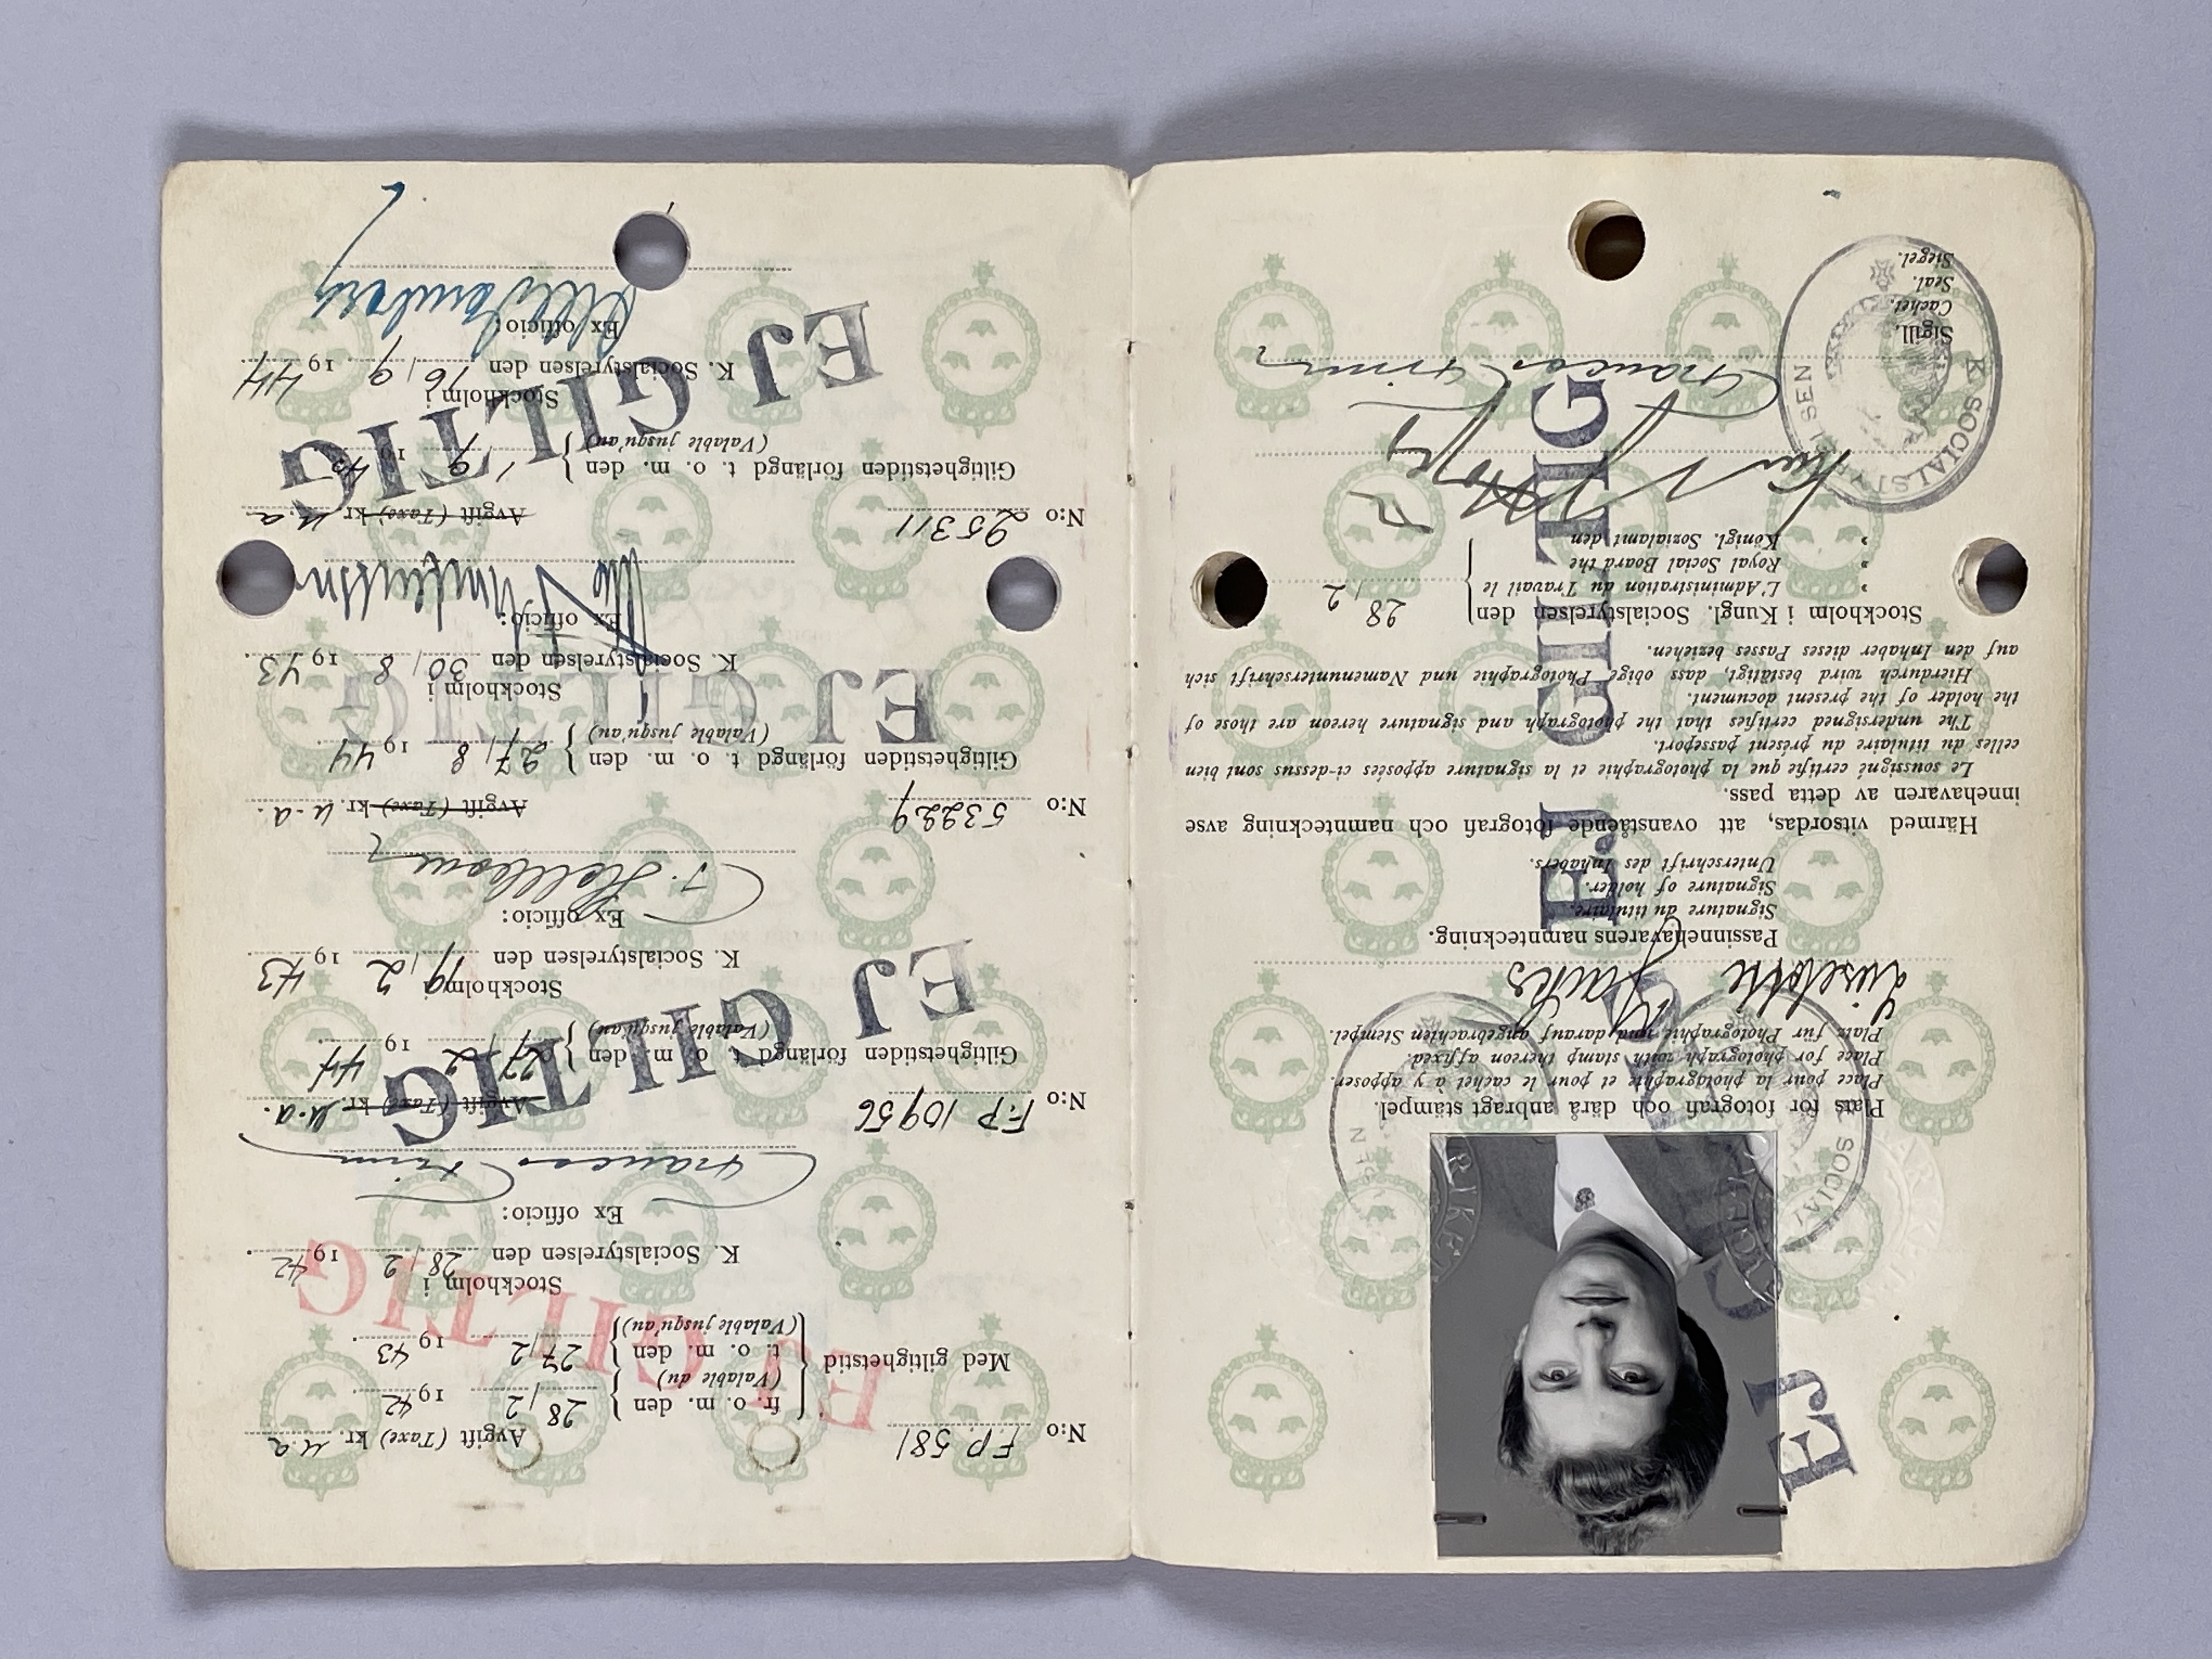 EJ GILTIG
Plats för fotografi och därå anbragt stämpel.
Place pour la photographie et pour le cachet à y apposer.
Place for photograph with stamp thereon affixed.
Platz für Photographie und darauf angebrachten Stempel.
Liselotte
Passinnehavarens namnteckning.
Signature du titulaire.
Signature of holder.
Unterschrift des Inhabers.
EJ GILTIG
Härmed vitsordas, att ovanstående fotografi och namnteckning avse
innehavaren av detta pass.
Le soussigné certifie que la photographie et la signature apposées ci-dessus sont bien
celles du titulaire du présent passeport.
The undersigned certifies that the photograph and signature hereon are those of
the holder of the present document.
Hierdurch wird bestätigt, dass obige Photographie und Namenunterschrift sich
auf den Inhaber dieses Passes beziehen.
Stockholm i Kungl. Socialstyrelsen den 28/2
» L'Administration du Travail le
» Royal Social Board the
» Königl. Sozialamt den
K. SOCIALSTYRELSEN
Sigill.
Cachet.
Seal.
Siegel.
N:o F.P. 581 Avgift (Taxe) kr. u.a
Med giltighetstid
fr. o. m. den 28/2 1942
(Valable du)
t. o. m. den 27/2 1943
(Valable jusqu'au)
EJ GILTIG
Stockholm i
K. Socialstyrelsen den 28/2 1942.
Ex officio:
N:o F.P. 10956 Avgift (Taxe) kr. u.a.
Giltighetstiden förlängd t. o. m. den 27/2 1944
(Valable jusqu'au)
EJ GILTIG
Stockholm i
K. Socialstyrelsen den 19/2 1943
Ex officio:
N:o 53229 Avgift (Taxe) kr. u.a.
Giltighetstiden förlängd t. o. m. den 27/8 1944
(Valable jusqu'au)
EJ GILTIG
Stockholm i
K. Socialstyrelsen den 30/8 1943
Ex officio:
N:o 25311 Avgift (Taxe) kr. u.a
Giltighetstiden förlängd t. o. m. den
(Valable jusqu'au)
EJ GILTIG
Stockholm i
K. Socialstyrelsen den 16/9 1944
Ex officio: